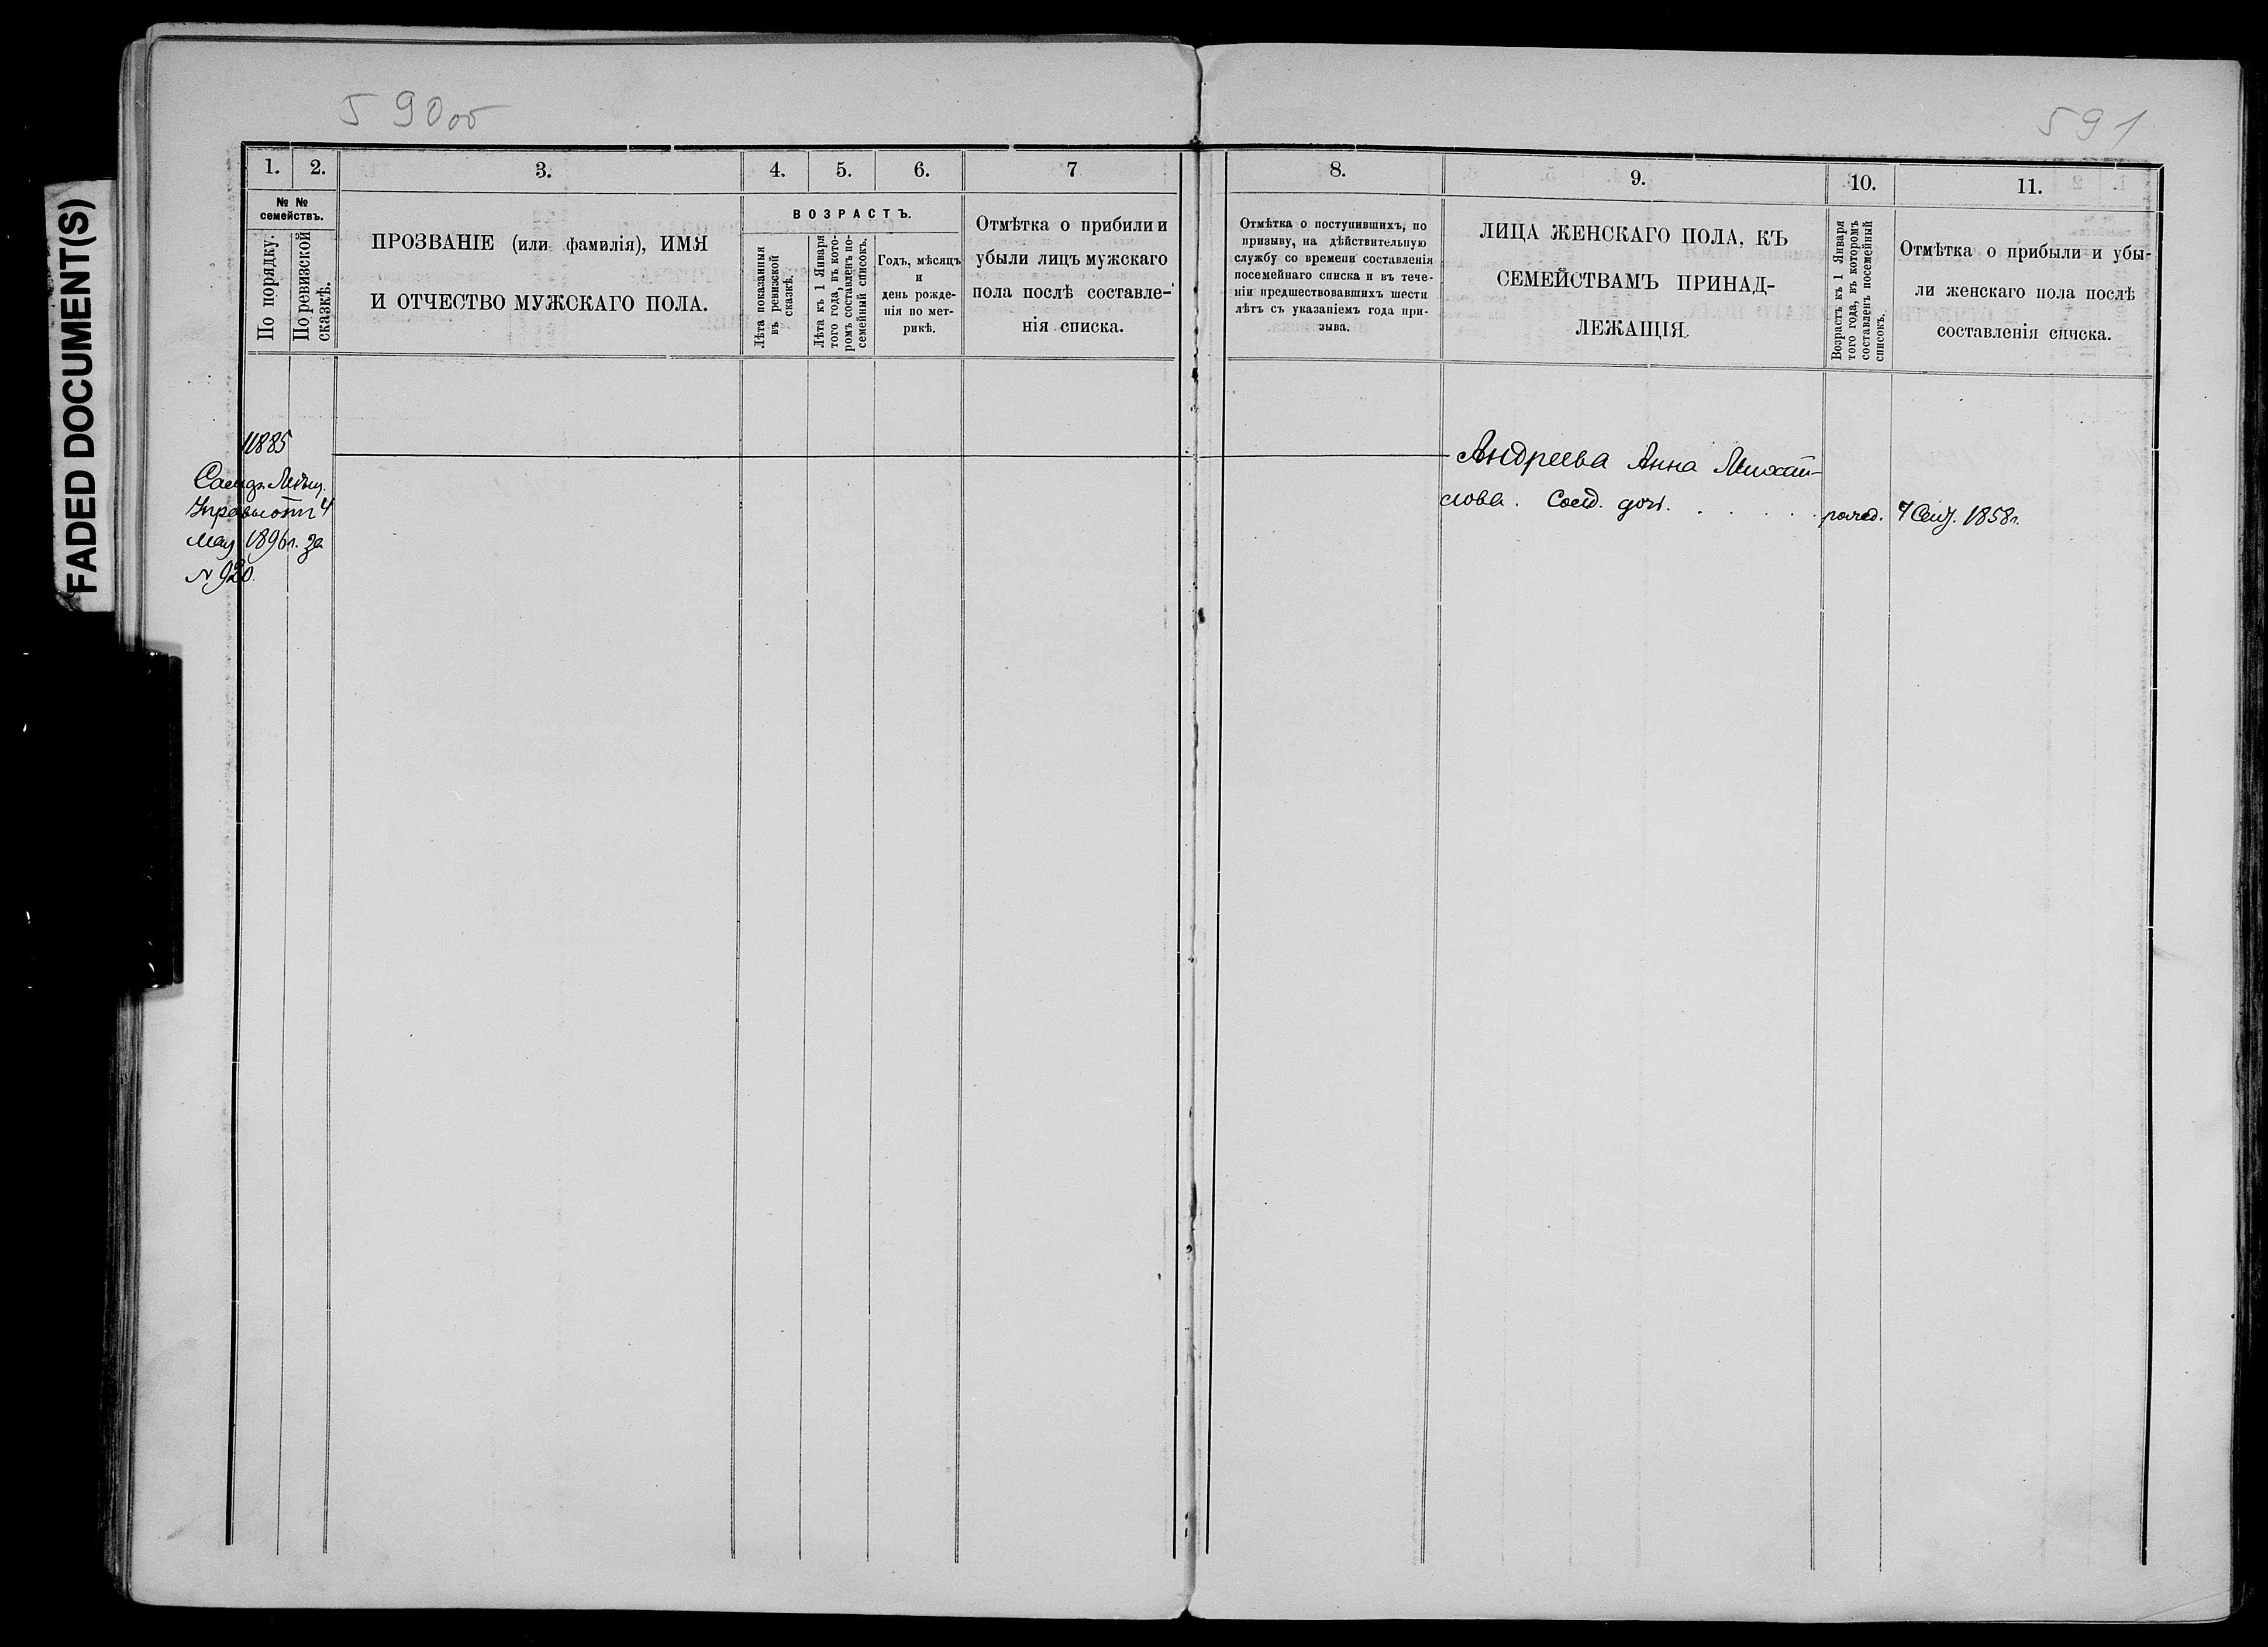 FADED DOCUMENT(S)
590об
591
1. 2. 3. 4. 5. 6. 7
№ №
семействъ.
По порядку.
По ревизской
сказкѣ.
ПРОЗВАНІЕ (или фамилія), ИМЯ
И ОТЧЕСТВО МУЖСКАГО ПОЛА.
ВОЗРАСТЪ.
Лѣта показанныя
въ ревизской
сказкѣ.
Лѣта къ 1 Января
того года, въ кото-
ромъ составленъ по-
семейный списокъ.
Годъ, мѣсяцъ
и
день рожде-
нія по мет-
рикѣ.
Отмѣтка о прибыли и
убыли лицъ мужскаго
пола послѣ составле-
нія списка.
8. 9. 10. 11.
Отмѣтка о поступившихъ, по
призыву, на дѣйствительную
службу со времени составленія
посемейнаго списка и въ тече-
ніи предшествовавшихъ шести
лѣтъ съ указаніемъ года при-
зыва.
ЛИЦА ЖЕНСКАГО ПОЛА, КЪ
СЕМЕЙСТВАМЪ ПРИНАД-
ЛЕЖАЩІЯ.
Возрастъ къ 1 Января
того года, въ которомъ
составленъ посемейный
списокъ.
Отмѣтка о прибыли и убы-
ли женскаго пола послѣ
составленія списка.
11885
Мая 1896 г. за
N 920.
Андреева Анна Михай-
лова. Солд. доч. . . . . . рожд. 7 Сент. 1858 г.